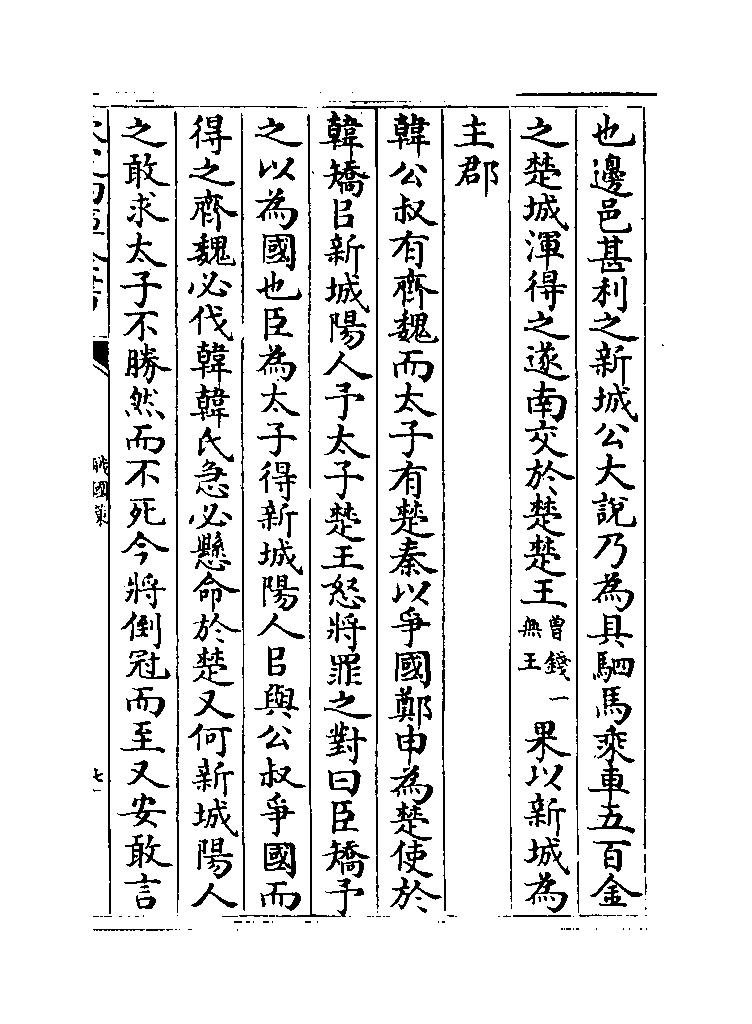 也邊邑甚利之新城公大說乃為具駟馬乘車五百金
之楚城渾得之遂南交於楚楚王曾錢一無王果以新城為
主郡
韓公叔有齊魏而太子有楚秦以爭國鄭申為楚使於
韓矯㠯新城陽人予太子楚王怒將罪之對曰臣矯予
之以為國也臣為太子得新城陽人㠯與公叔爭國而
得之齊魏必伐韓韓氏急必懸命於楚又何新城陽人
之敢求太子不勝然而不死今將倒冠而至又安敢言
戰國策